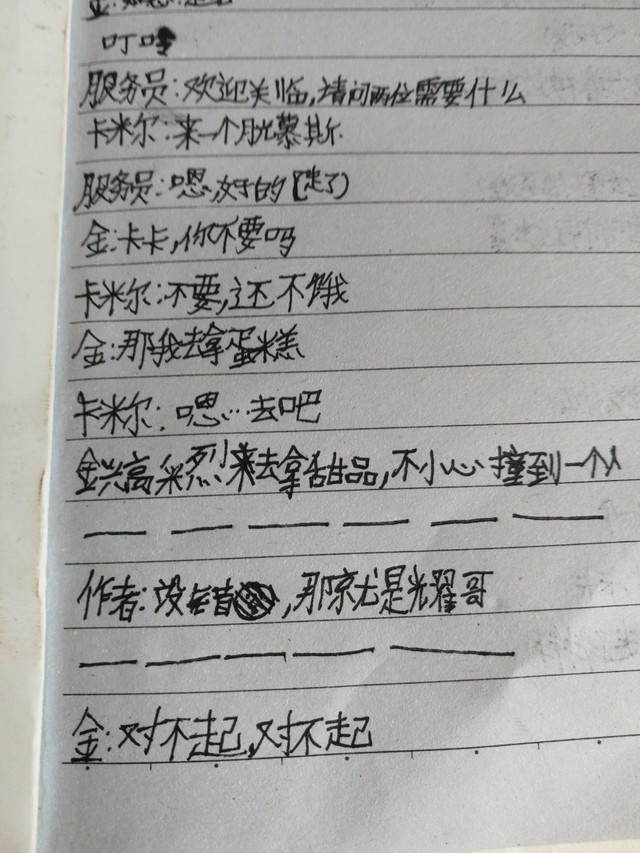 金:
叮咚
服务员:欢迎关临,请问两位需要什么
卡米尔:来一个慕斯
服务员:嗯,好的(走了)
金:卡卡,你不要吗
卡米尔:不要,还不饿
金:那我去拿蛋糕
卡米尔:嗯…去吧
金兴高采烈来去拿甜品,不小心撞到一个人
作者:没错,那就是光耀哥
金:对不起,对不起